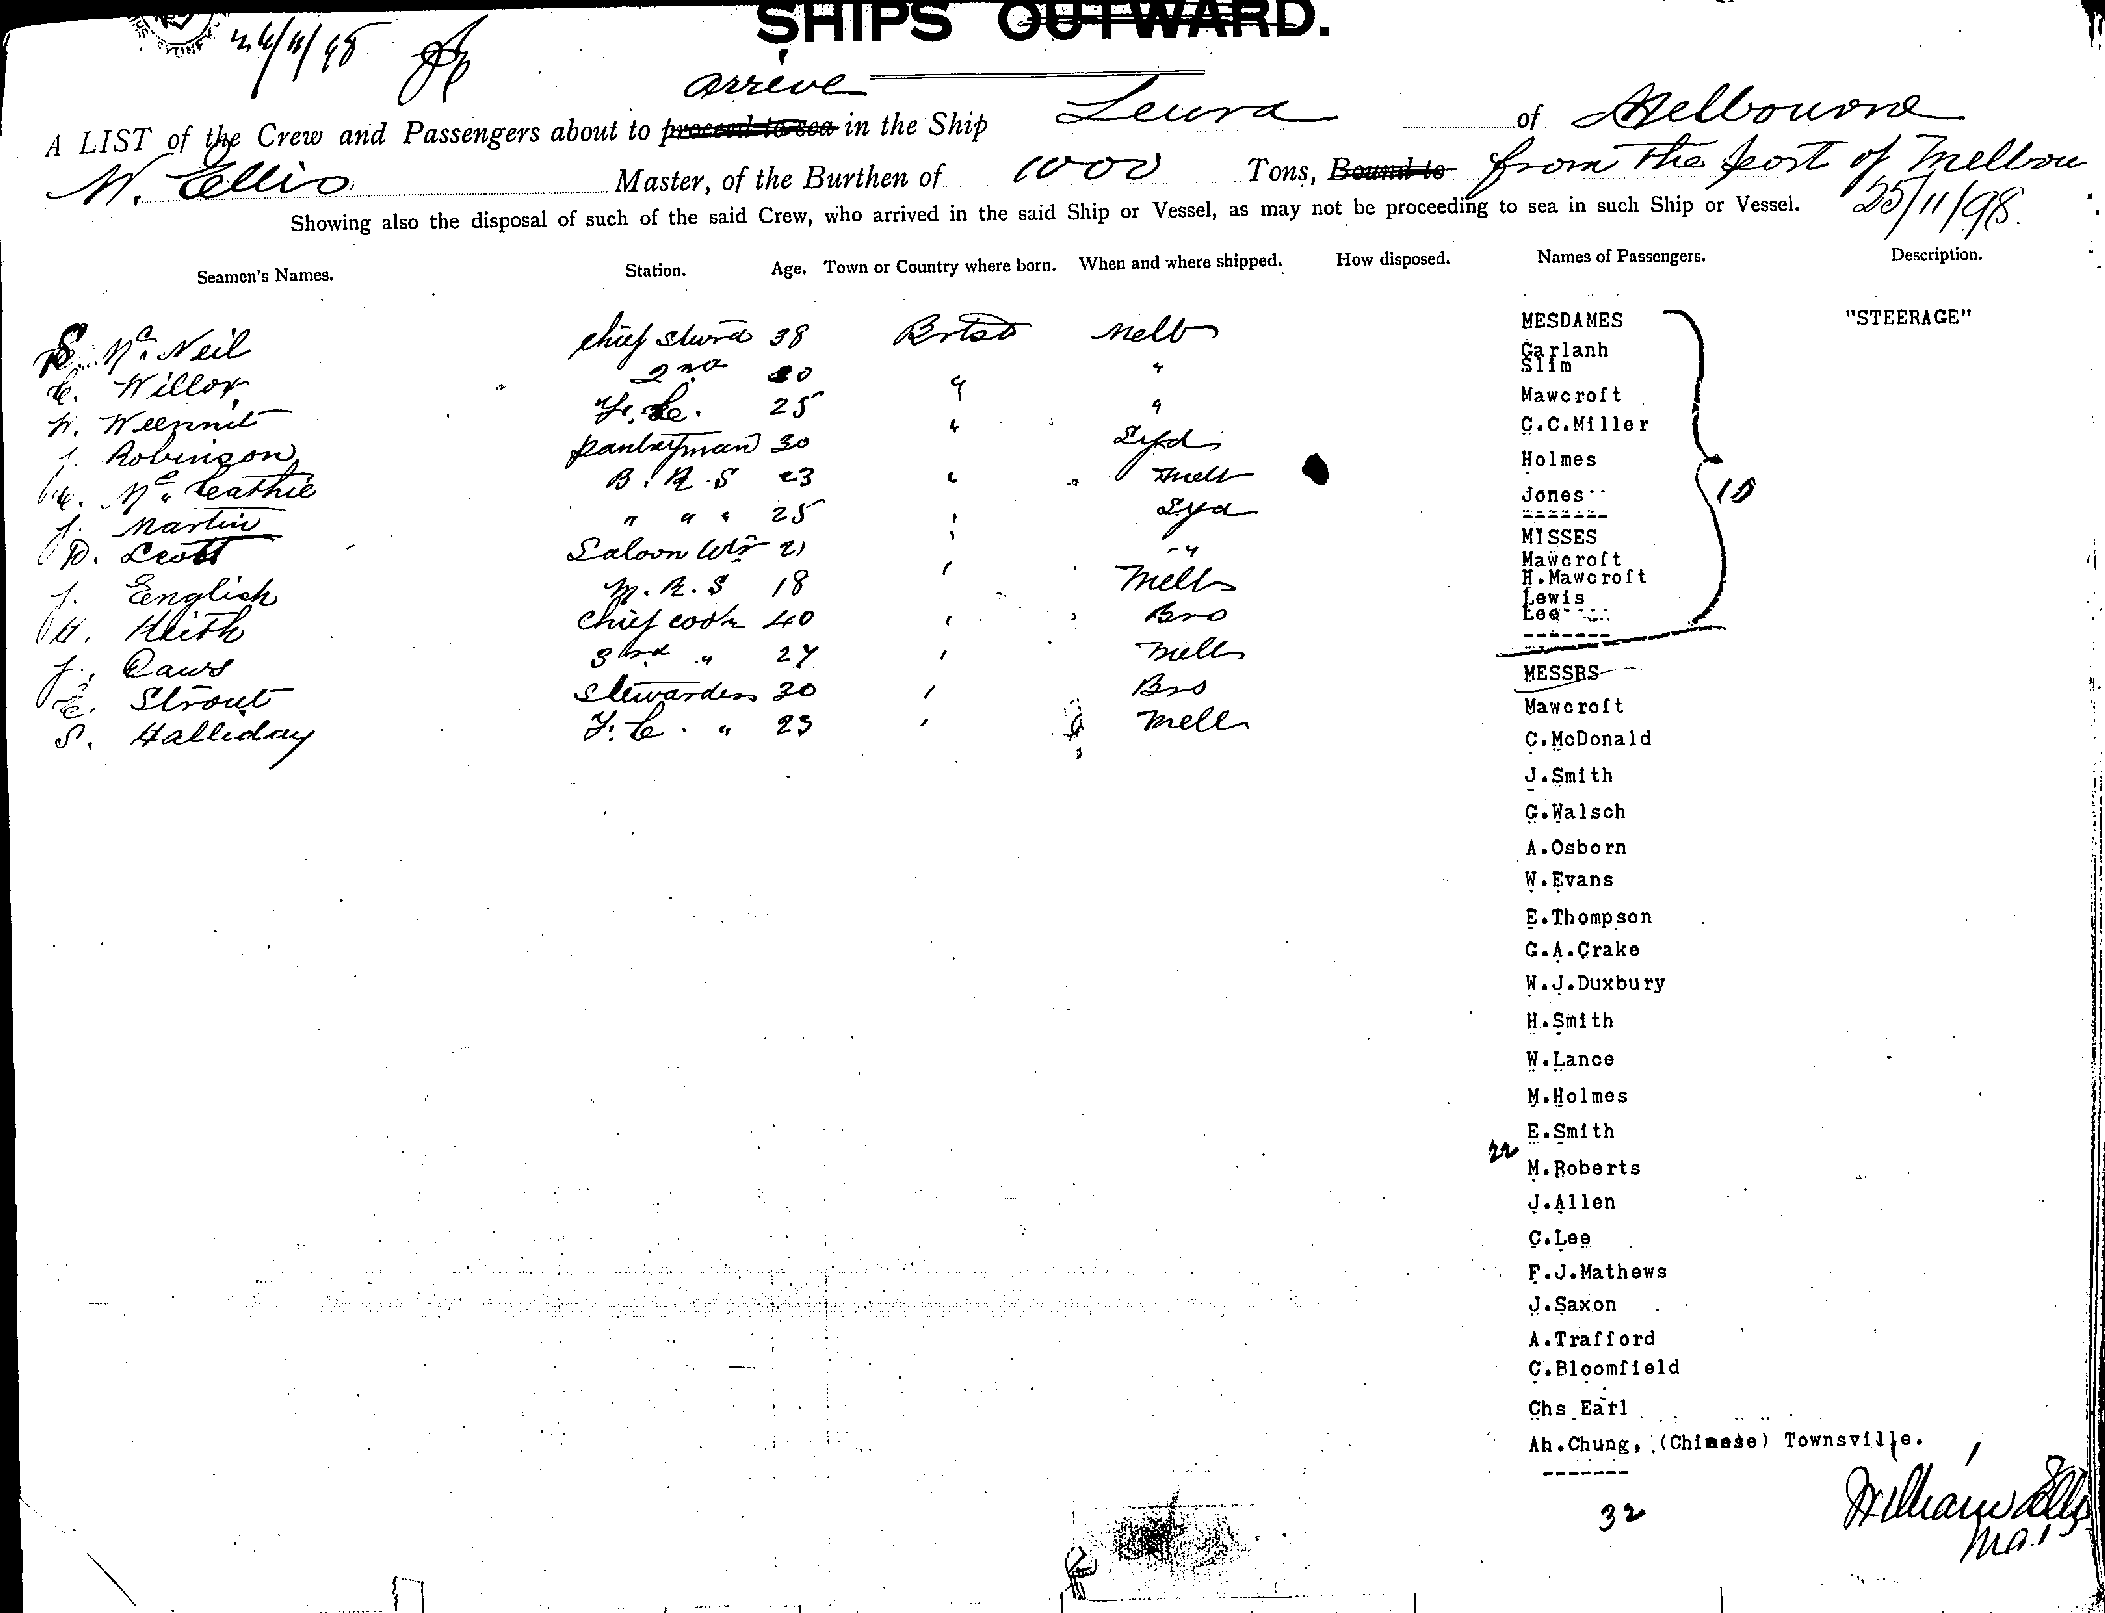 SHIPS OUTWARD.
26/11/98
arrive
A LIST of the Crew and Passengers about to proceed to sea in the Ship Leura of Melbourne
W. Ellis Master, of the Burthen of 1000 Tons, Bound to from the port of Melbou
25/11/98.
Showing also the disposal of such of the said Crew, who arrived in the said Ship or Vessel, as may not be proceeding to sea in such Ship or Vessel.
Seamen's Names. Station. Age. Town or Country where born. When and where shipped. How disposed. Names of Passengers. Description.
S. Mc. Neil chief Stwrd 38 Melb
2nd "
25 "
J. Robinson Pantryman 30 " Syd
B. R. S 23 " Melb
J. Martin " " " 25 Syd
D. Scott Saloon Wtr 21 "
J. English M. R. S 18 Melb
H. Keith Chief cook 40 Bro
J. Daws 3rd " 27 Melb
E. Strout Stewardess 30 Bro
S. Halliday F. C. " 23 Melb
MESDAMES "STEERAGE"
Garlanh
Slim
Mawcroft
C.C.Miller
Holmes
Jones
-------
10
MISSES
Mawcroft
H.Mawcroft
Lewis
Lee
-------
MESSRS
Mawcroft
C.McDonald
J.Smith
G.Walsch
A.Osborn
W.Evans
E.Thompson
G.A.Crake
W.J.Duxbury
H.Smith
W.Lance
M.Holmes
E.Smith
22
M.Roberts
J.Allen
C.Lee
F.J.Mathews
J.Saxon
A.Trafford
C.Bloomfield
Chs Earl
Ah.Chung, (Chinese) Townsville.
-------
32
William Ellis